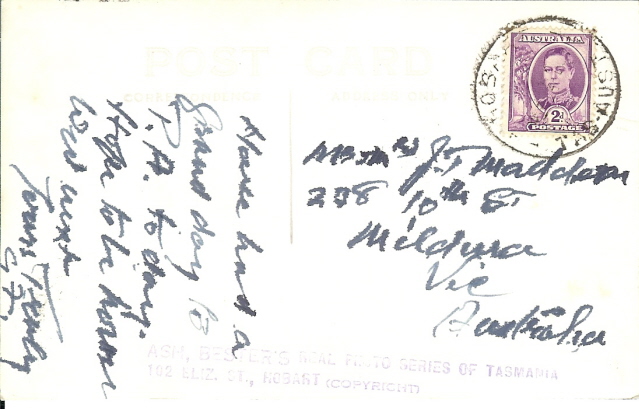 POST CARD
CORRESPONDENCE
ADDRESS ONLY
AUSTRALIA
2D
POSTAGE
HOBART
Have had a
Grand day to
P.A. to day.
Hope to be home
Wed next
Yours Truly
J T Madden
238 10th St
Mildura
Vic
Australia
ASH, BESTER'S REAL PHOTO SERIES OF TASMANIA
102 ELIZ. ST., HOBART (COPYRIGHT)